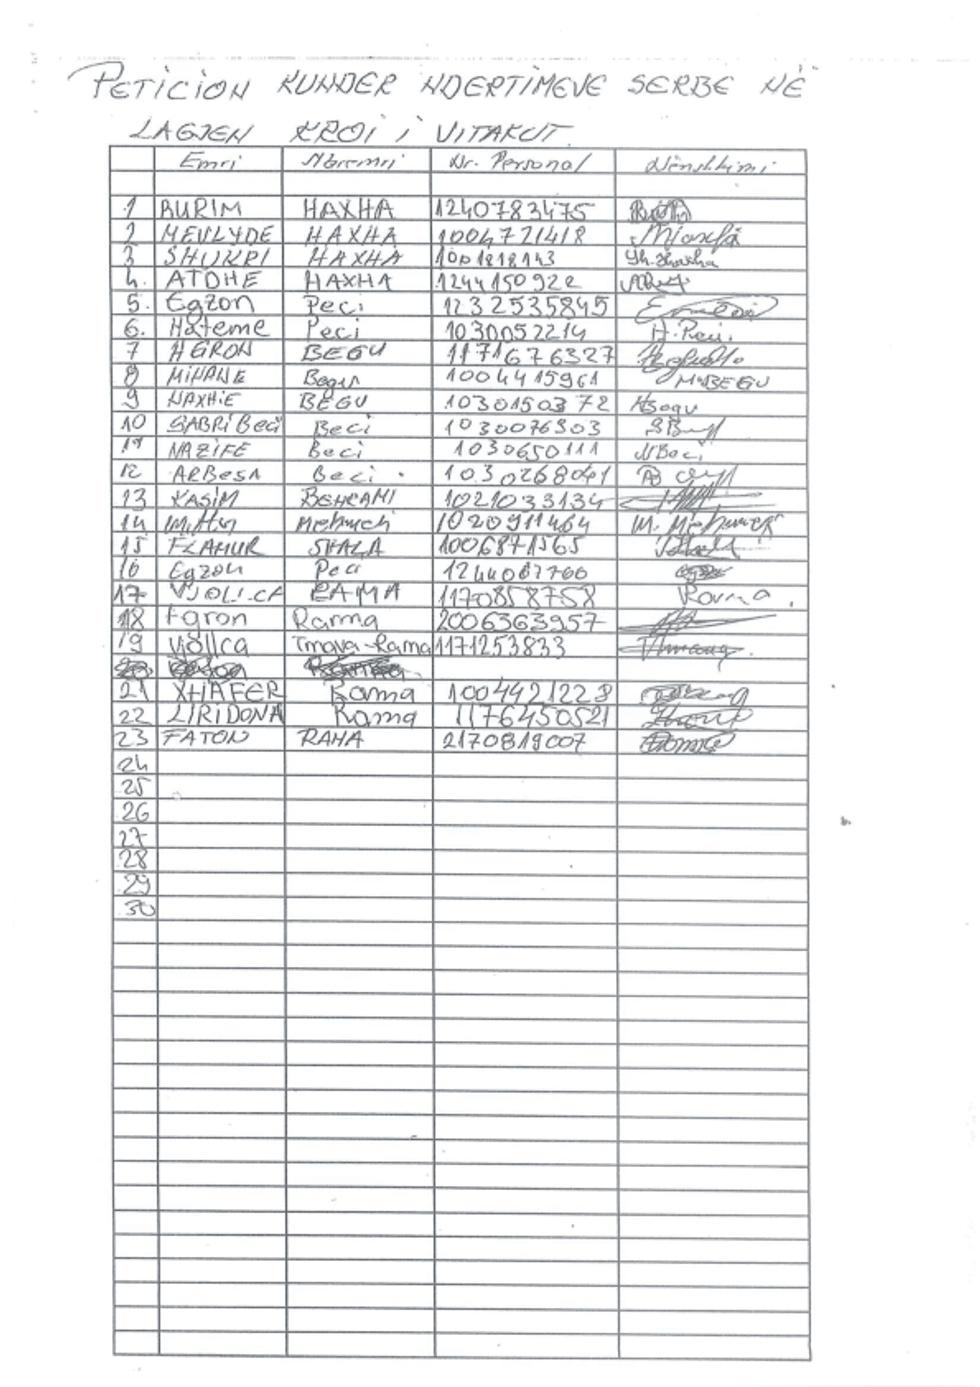 PETICION KUNDER NDERTIMEVE SERBE NË
LAGJEN KROI I VITAKUT
Emri Mbiemri Nr. Personal Nënshkimi
1 BURIM HAXHA 1240783475
2 MEVLYDE HAXHA 1004721418
3 SHUKRI HAXHA 1001818143 Sh.Haxha
4. ATDHE HAXHA 1244150922
5. Egzon Peci 1232535845
6. Hateme Peci 1030052214 H.Peci.
7 AGRON BEGU 1171676327
8 MIHANE Begu 1004415961 M.BEGU
9 NAXHIE BEGU 1030150372 NBegu
10 SABRI Beci Beci 1030076303
11 NAZIFE Beci 1030650111 NBeci
12 ARBESA Beci 1030268041
13 KASIM BEHRAMI 1021033134
14 Mehmeti 1020911464
15 FLAMUR SHALA 1006871565
16 Egzon Peci 1244067760
17 VJOLLCA RAMA 1170858758 Rama
18 Faron Rama 2006363957
19 Vjollca Tmava-Rama 1171253833
20
21 XHAFER Rama 1004421228
22 LIRIDONA Rama 1176450521
23 FATON RAMA 2170819007
24
25
26
27
28
29
30